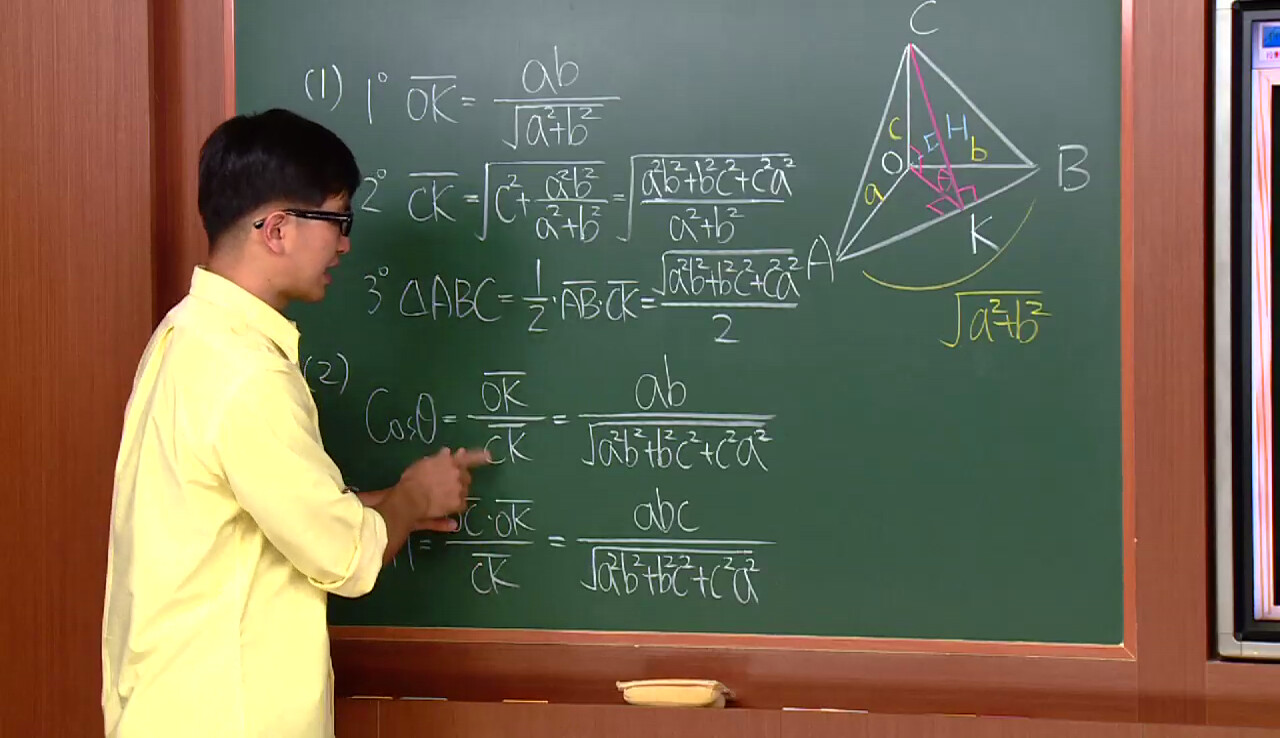 (1) 1° O̅K̅ = ab / √(a²+b²)
2° C̅K̅ = √(c² + a²b² / (a²+b²)) = √((a²b²+b²c²+c²a²) / (a²+b²))
3° △ABC = 1/2 · A̅B̅ · C̅K̅ = √(a²b²+b²c²+c²a²) / 2
(2)
Cosθ = O̅K̅ / C̅K̅ = ab / √(a²b²+b²c²+c²a²)
= O̅C̅ · O̅K̅ / C̅K̅ = abc / √(a²b²+b²c²+c²a²)
C
c
H
O
b
B
a
θ
K
A
√(a²+b²)